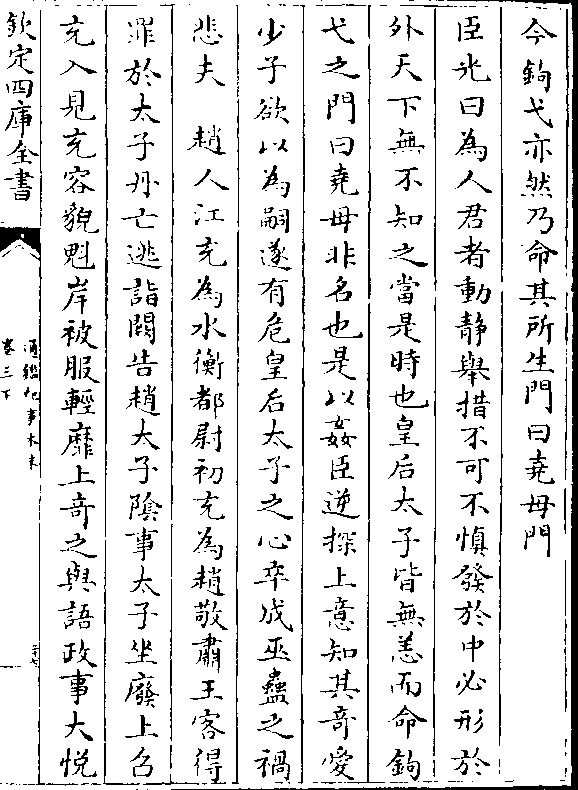 今鉤弋亦然乃命其所生門曰堯母門
臣光曰為人君者動静舉措不可不慎發於中必形於
外天下無不知之當是時也皇后太子皆無恙而命鉤
弋之門曰堯母非名也是以姦臣逆探上意知其竒愛
少子欲以為嗣遂有危皇后太子之心卒成巫蠱之禍
悲夫　趙人江充為水衡都尉初充為趙敬肅王客得
罪於太子丹亡逃詣闕告趙太子隂事太子坐廢上召
充入見充容貌魁岸被服輕靡上竒之與語政事大悦
欽定四庫全書
通鑑紀事本末
卷三下